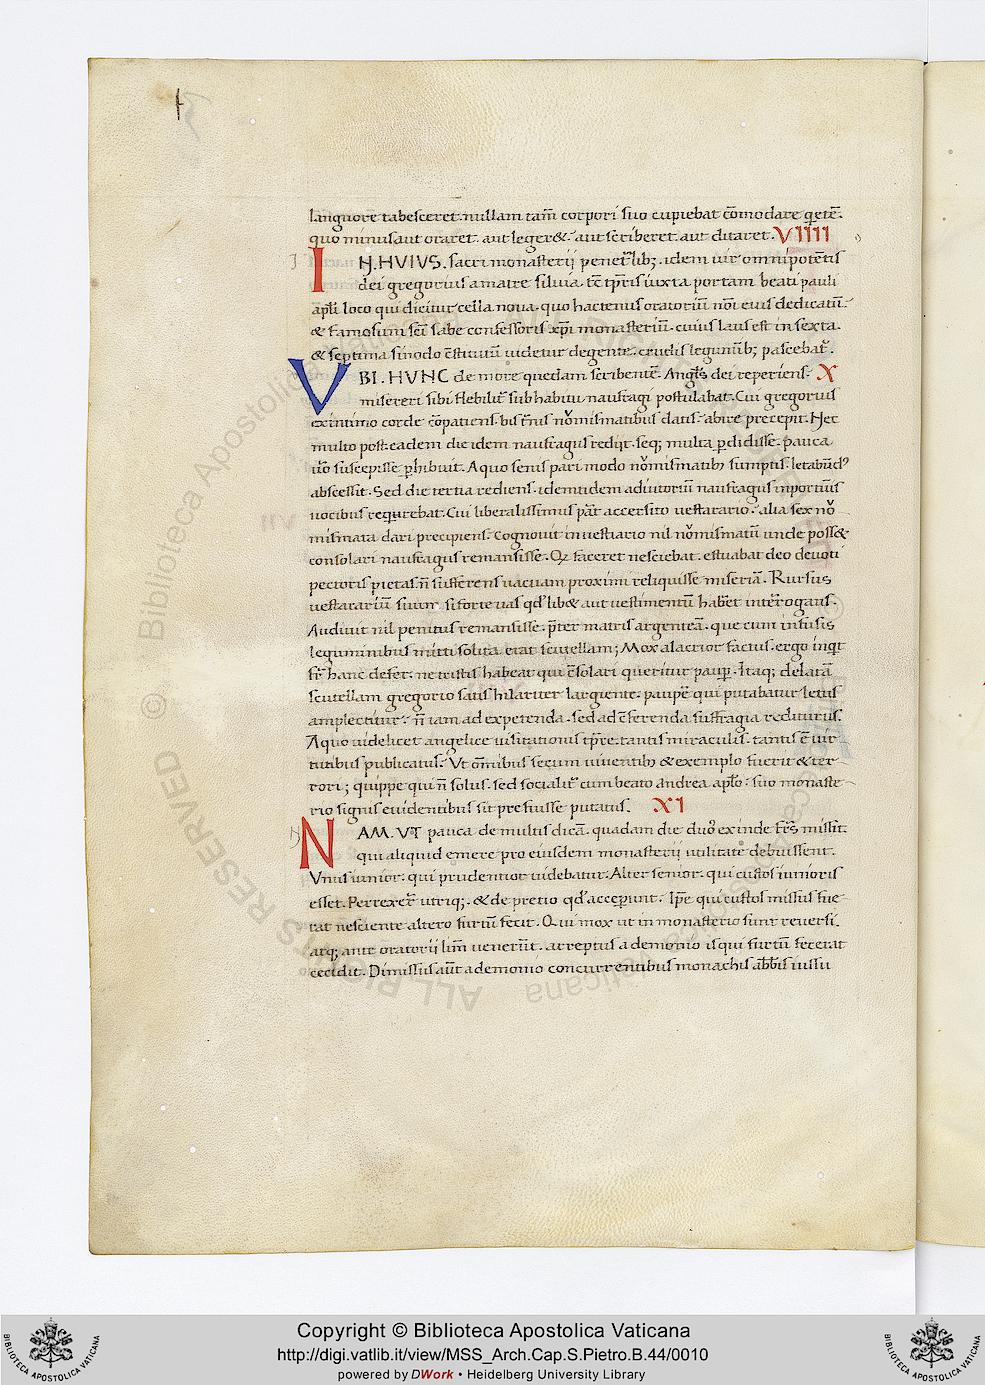 languore tabesceret. nullam tam̄ corpori suo cupiebat cōmodare q̇etē.
quo minus aut oraret. aut leger&. aut scriberet. aut dictaret. VIIII
IN. HVIVS. sacri monasterij penetͬlib; .idem uir omnipotētis
dei gregorius a matre siluia. tc̄ tp̄ris iuxta portam beati pauli
apl̄i loco qui dicitur cella noua. quo hactenus oratoriū nōi eius dedicatū.
& famosum scī sabe confessoris xp̄i monasteriū. cuius laus est in sexta.
& septima sinodo c̄stitutū uidetur degente. crudis legumīb; pascebatͬ.
VBI. HVNC de more quedam scribentē. Angl̄s dei reperiens. X
misereri sibi flebilitͬ sub habitu naufragi postulabat. Cui gregorius
ex intimo corde c̄patiens. bis t̄nis nōmismatibus datis. abire precepit. Nec
multo post. eadem die idem naufragus redijt. seq; multa ꝑdidisse. pauca
ūo suscepisse ꝑhibuit. A quo senis pari modo nōmismatib; sumptis. letabūdꝰ
abscessit. Sed die tertia rediens. idemtidem adiutoriū naufragus inportūis
uocibus reqͥrebat. Cui liberalissimus pat̄ accersito uestarario. alia sex nō
mismata dari precipiens. cognouit in uestiario nil nōmismatū unde poss&
consolari naufragus remansisse. Qͥd faceret nesciebat. estuabat deo deuoti
pectoris pietas. n̄ sufferens uacuam proximi reliquisse miseriā. Rursus
uestarariū suum. si forte uas qd̄ lib& aut uestimentū hab̄et intērogans.
Audiuit nil penitus remansisse. p̄ter matris argenteā. que cum infusis
leguminibus mitti solita erat scutellam; Mox alacrior factus. ergo inqͥt
fr̄ hanc defer. ne tristis habeat qui c̄solari queritur paup̄. Itaq; delatā
scutellam gregorio satis hilariter largiente. paupē qui putabatur letus
amplectitur. n̄ iam ad expetenda. sed ad c̄ferenda suffragia rediturus.
A quo uidelicet angelice uisitationis tp̄re. tantis miraculis. tantis ē uir
tutibus publicatus. Vt om̄ibus secum uiuentib; & exemplo fuerit & ter
rori; quippe qui n̄ solus. sed socialitͬ cum beato andrea aplo. suo monaste
rio signis euidentibus sit prefuisse putatus. XI
NAM. VT pauca de multis dicā. quadam die duos ex inde fr̄s misit.
qui aliquid emere pro eiusdem monasterij utilitate debuissent.
Vnus iunior. qui prudentior uidebatur. Alter senior. qui custos iunioris
esset. Perrexer̄t utriq; . & de pretio qd̄ acceꝑunt. Ip̄e qui custos missus fue
rat nesciente altero furtū fecit. Qui mox ut in monasterio sunt reuersi.
atq; ante oratorij lim̄ uenerūt. arreptus a demonio is qui furtū fecerat
cecidit. Dimissus aūt a demonio concurrentibus monachis abb̄is iussu
© Biblioteca Apostolica Vaticana
ALL RIGHTS RESERVED
Copyright © Biblioteca Apostolica Vaticana
http://digi.vatlib.it/view/MSS_Arch.Cap.S.Pietro.B.44/0010
powered by DWork • Heidelberg University Library
BIBLIOTECA APOSTOLICA VATICANA
BIBLIOTECA APOSTOLICA VATICANA